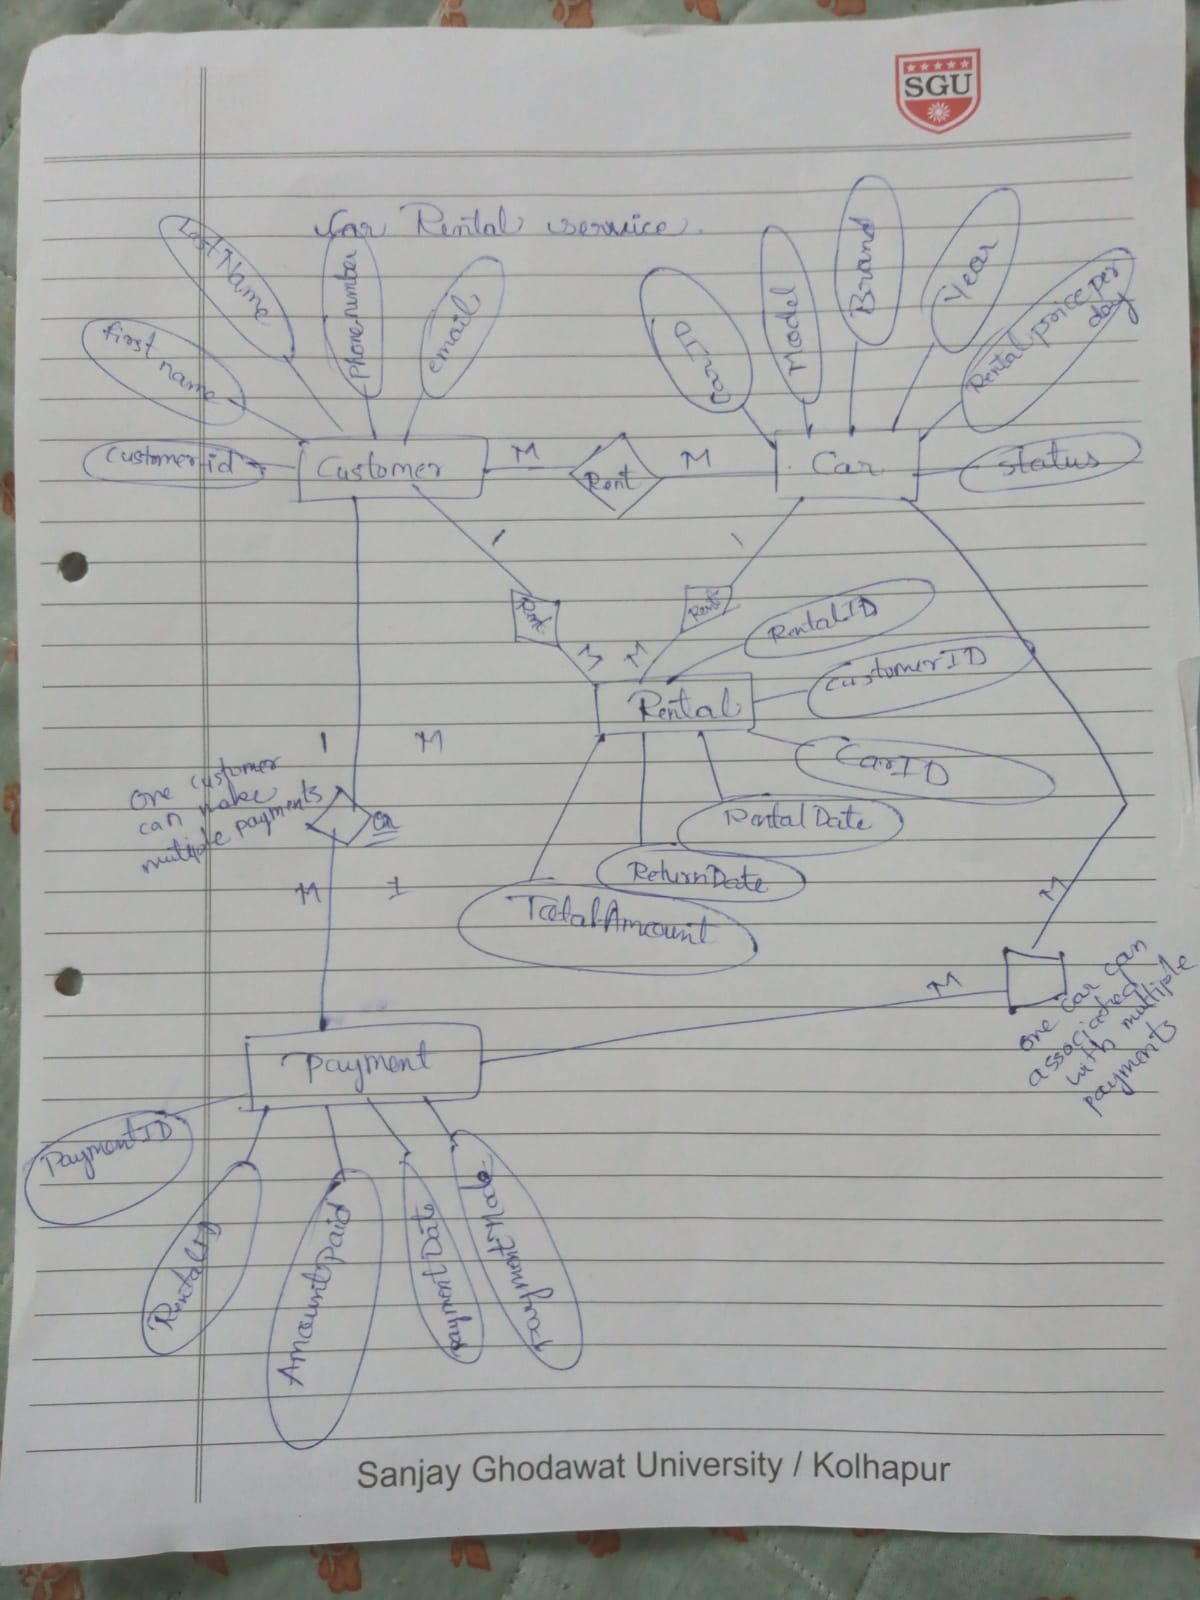 SGU
Car Rental service.
Last Name
Phonenumber
email
first name
Customer-id
Customer
M
Rent
M
Car
Car_ID
Model
Brand
Year
Rental price per day
status
1
1
Rent
Rent
M
M
Rental
RentalID
CustomerID
CarID
Rental Date
ReturnDate
TotalAmount
1
M
One customer
can make
multiple payments
OR
M
1
M
M
one car can
associated
with multiple
payments
Payment
PaymentID
RentalID
AmountPaid
PaymentDate
Sanjay Ghodawat University / Kolhapur